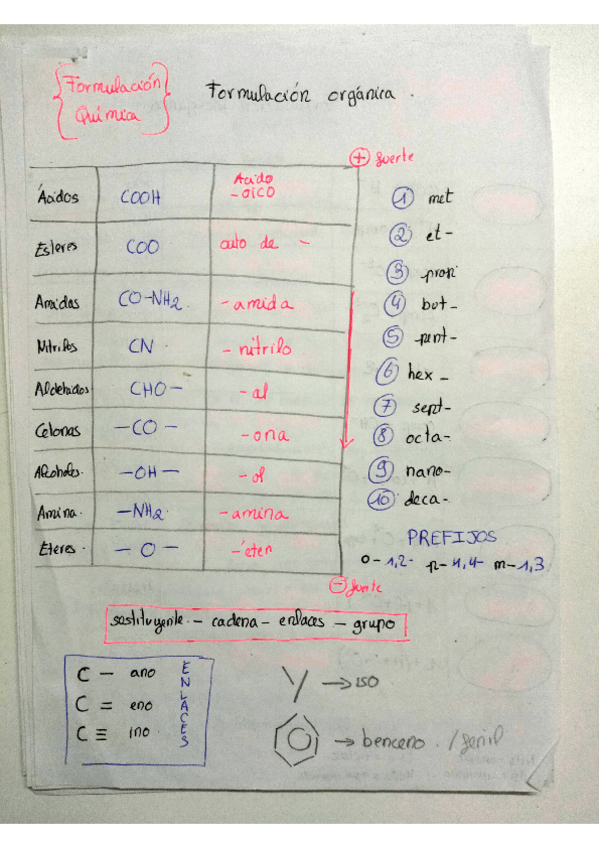 Formulación
Química
Formulación orgánica.
+ fuerte
Ácidos COOH Ácido -OICO
Esteres COO ato de -
Amidas CO-NH2. -amida
Nitrilos CN. -nitrilo
Aldehidos CHO- -al
Cetonas -CO- -ona
Alcoholes. -OH- -ol
Amina. -NH2. -amina
Éteres. -O- -éter
1 met
2 et-
3 prop-
4 bot-
5 pent-
6 hex-
7 sept-
8 octa-
9 nano-
10 deca-
PREFIJOS
o-1,2- p-1,4- m-1,3
- fuerte
sustituyente - cadena - enlaces - grupo
C - ano
C = eno
C ≡ ino.
ENLACES
→ ISO
→ benceno. / fenil